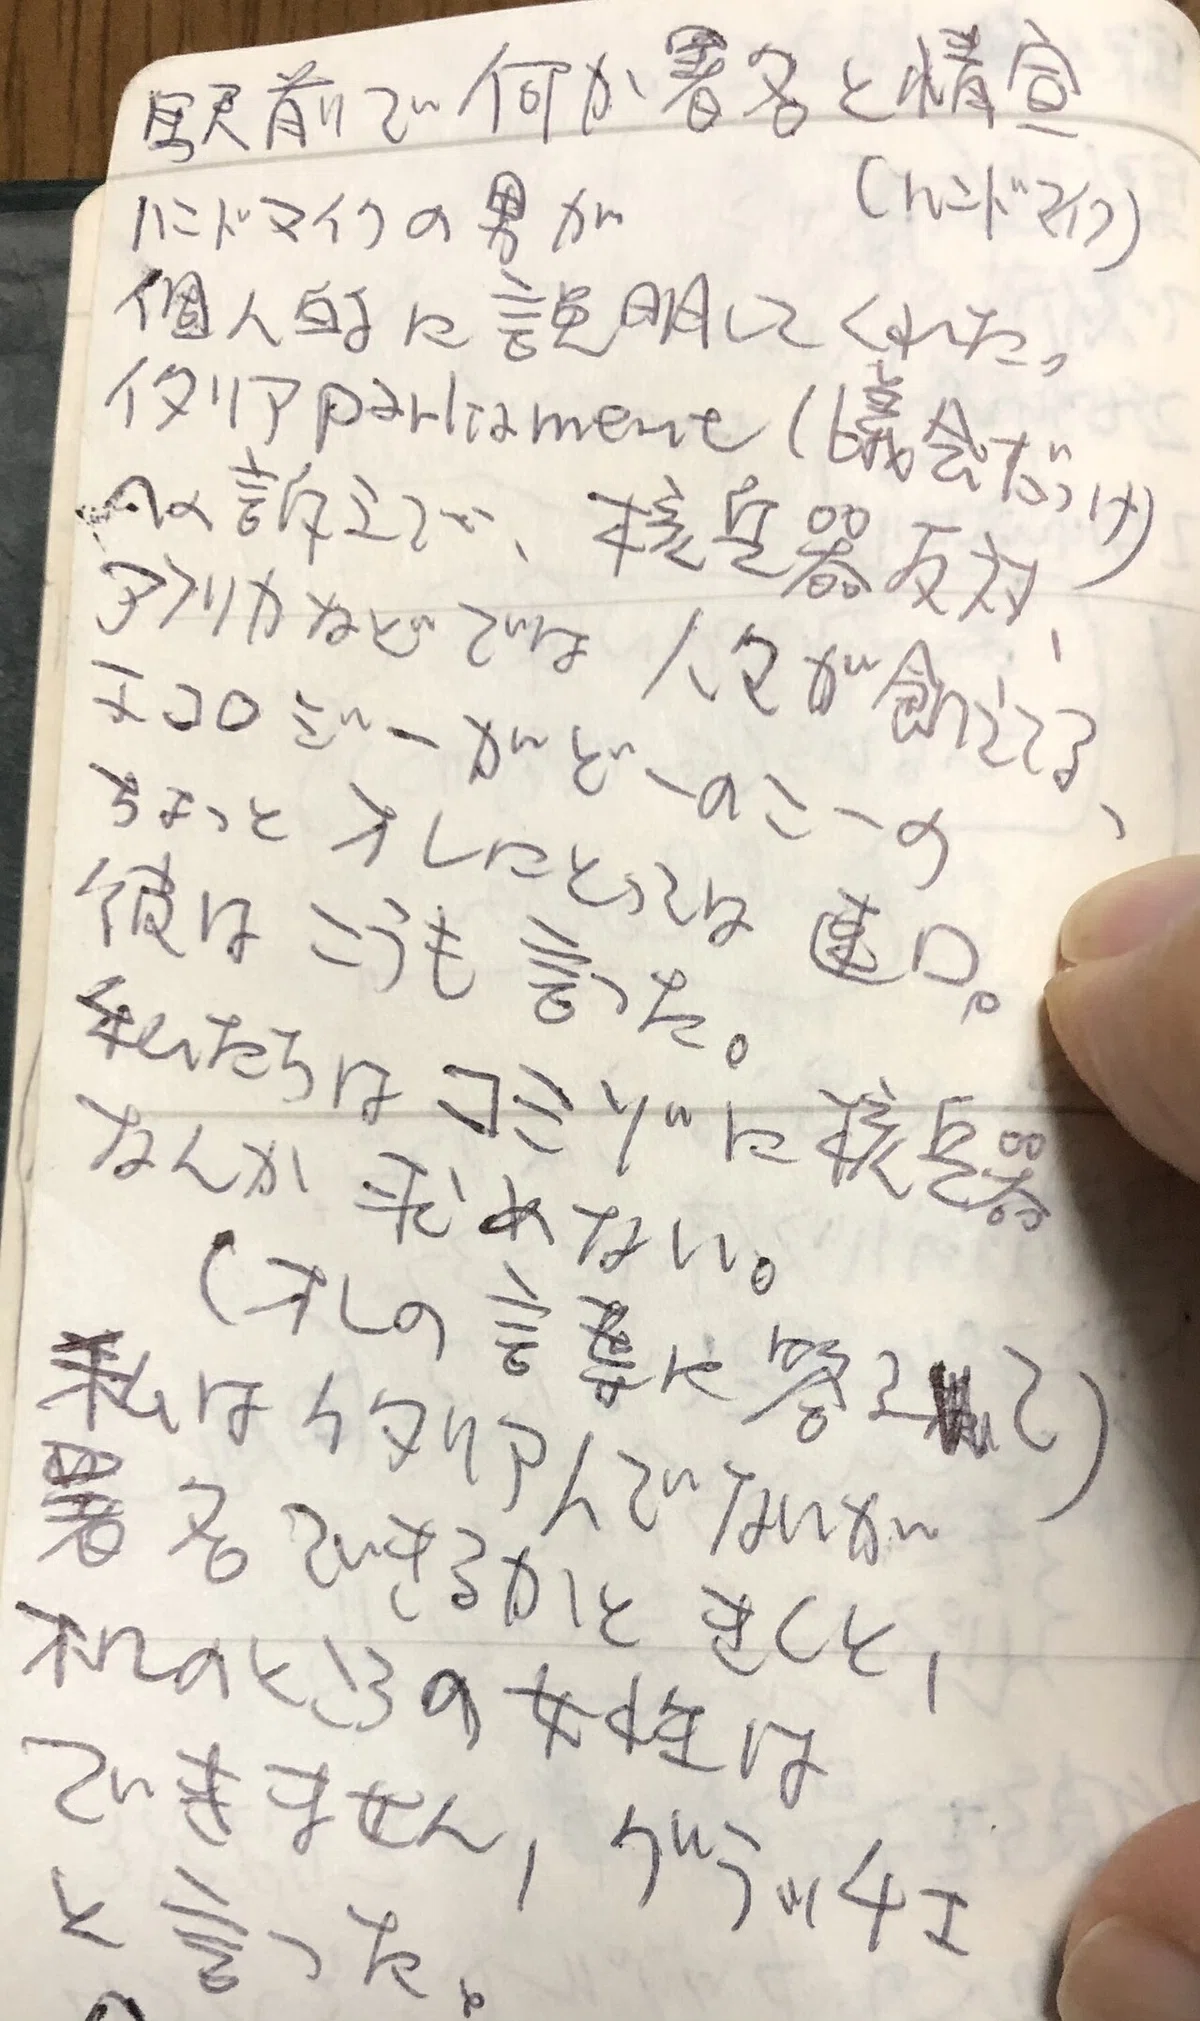 駅前で何か署名と情宣
(ハンドマイク)
ハンドマイクの男が
個人的に説明してくれた、
イタリアparliamente(議会だっけ)
への訴えで、核兵器反対、
アフリカなどでは人々が飢えてる、
エコロジーがどーのこーの
ちょっとオレにとっては速口。
彼はこうも言った。
私たちはロシアに核兵器
なんか求めない。
(オレの言葉に答えて)
私はイタリア人でないが
署名できるかときくと、
オレのところの女性は
できません,グラッチェ
と言った。